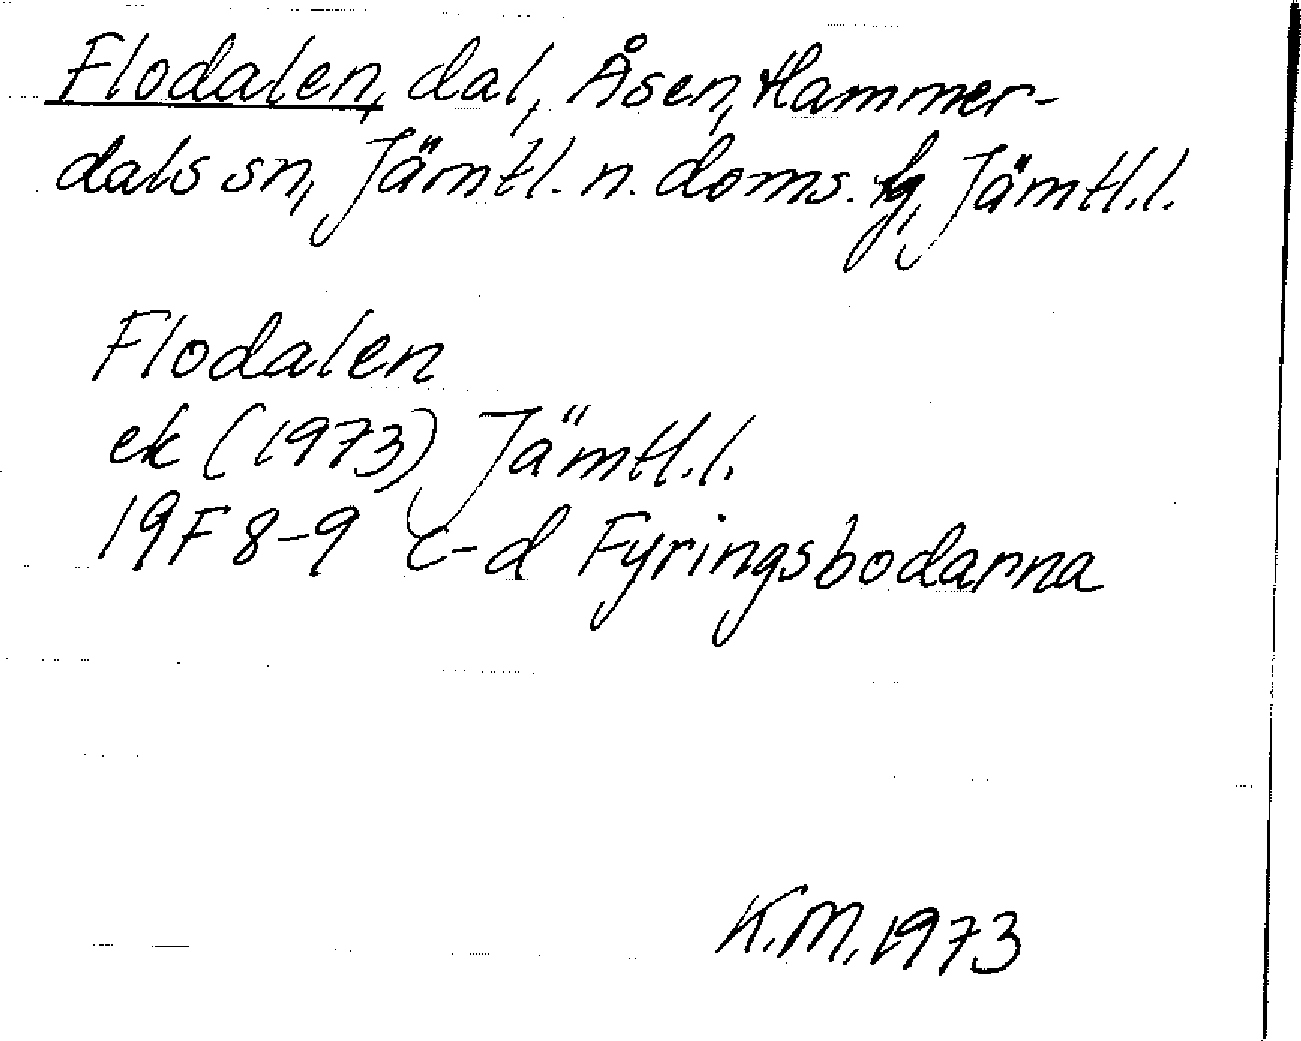 Flodalen, dal, Åsen, Hammer-
dals sn, Jämtl. n. doms. fg, Jämtl.l.
Flodalen
ek (1973) Jämtl.l.
19F 8-9 c-d Fyringsbodarna
K.M. 1973